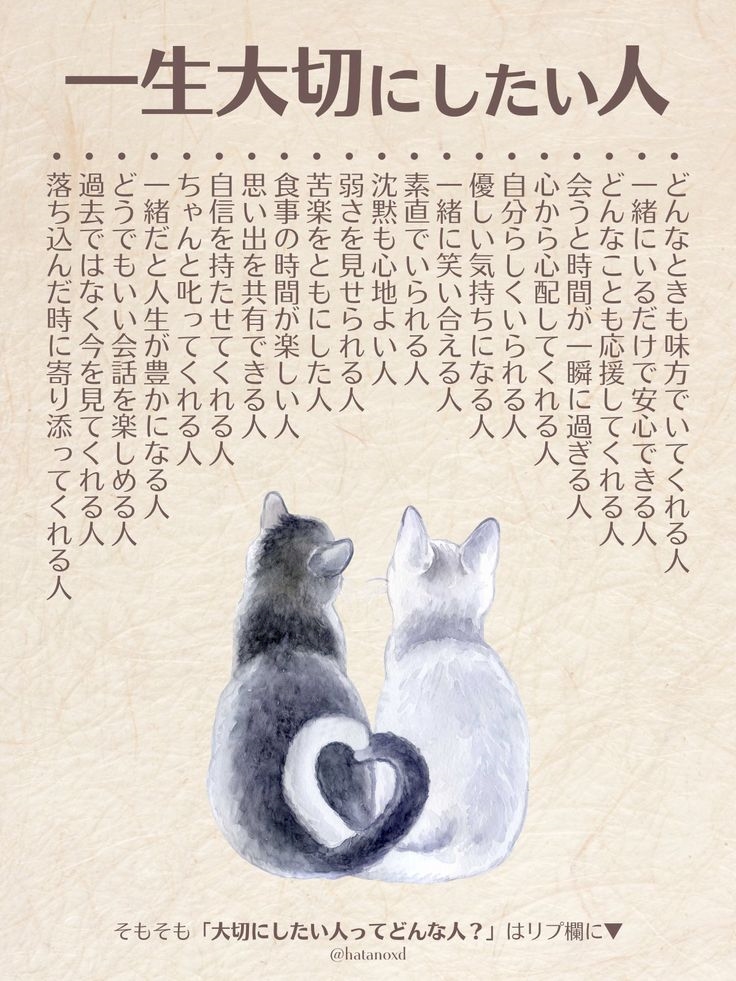 一生大切にしたい人
・どんなときも味方でいてくれる人
・一緒にいるだけで安心できる人
・どんなことも応援してくれる人
・会うと時間が一瞬に過ぎる人
・心から心配してくれる人
・自分らしくいられる人
・優しい気持ちになる人
・一緒に笑い合える人
・素直でいられる人
・沈黙も心地よい人
・弱さを見せられる人
・苦楽をともにした人
・食事の時間が楽しい人
・思い出を共有できる人
・自信を持たせてくれる人
・ちゃんと叱ってくれる人
・一緒だと人生が豊かになる人
・どうでもいい会話を楽しめる人
・過去ではなく今を見てくれる人
・落ち込んだ時に寄り添ってくれる人
そもそも「大切にしたい人ってどんな人？」はリプ欄に▼
@hatanoxd